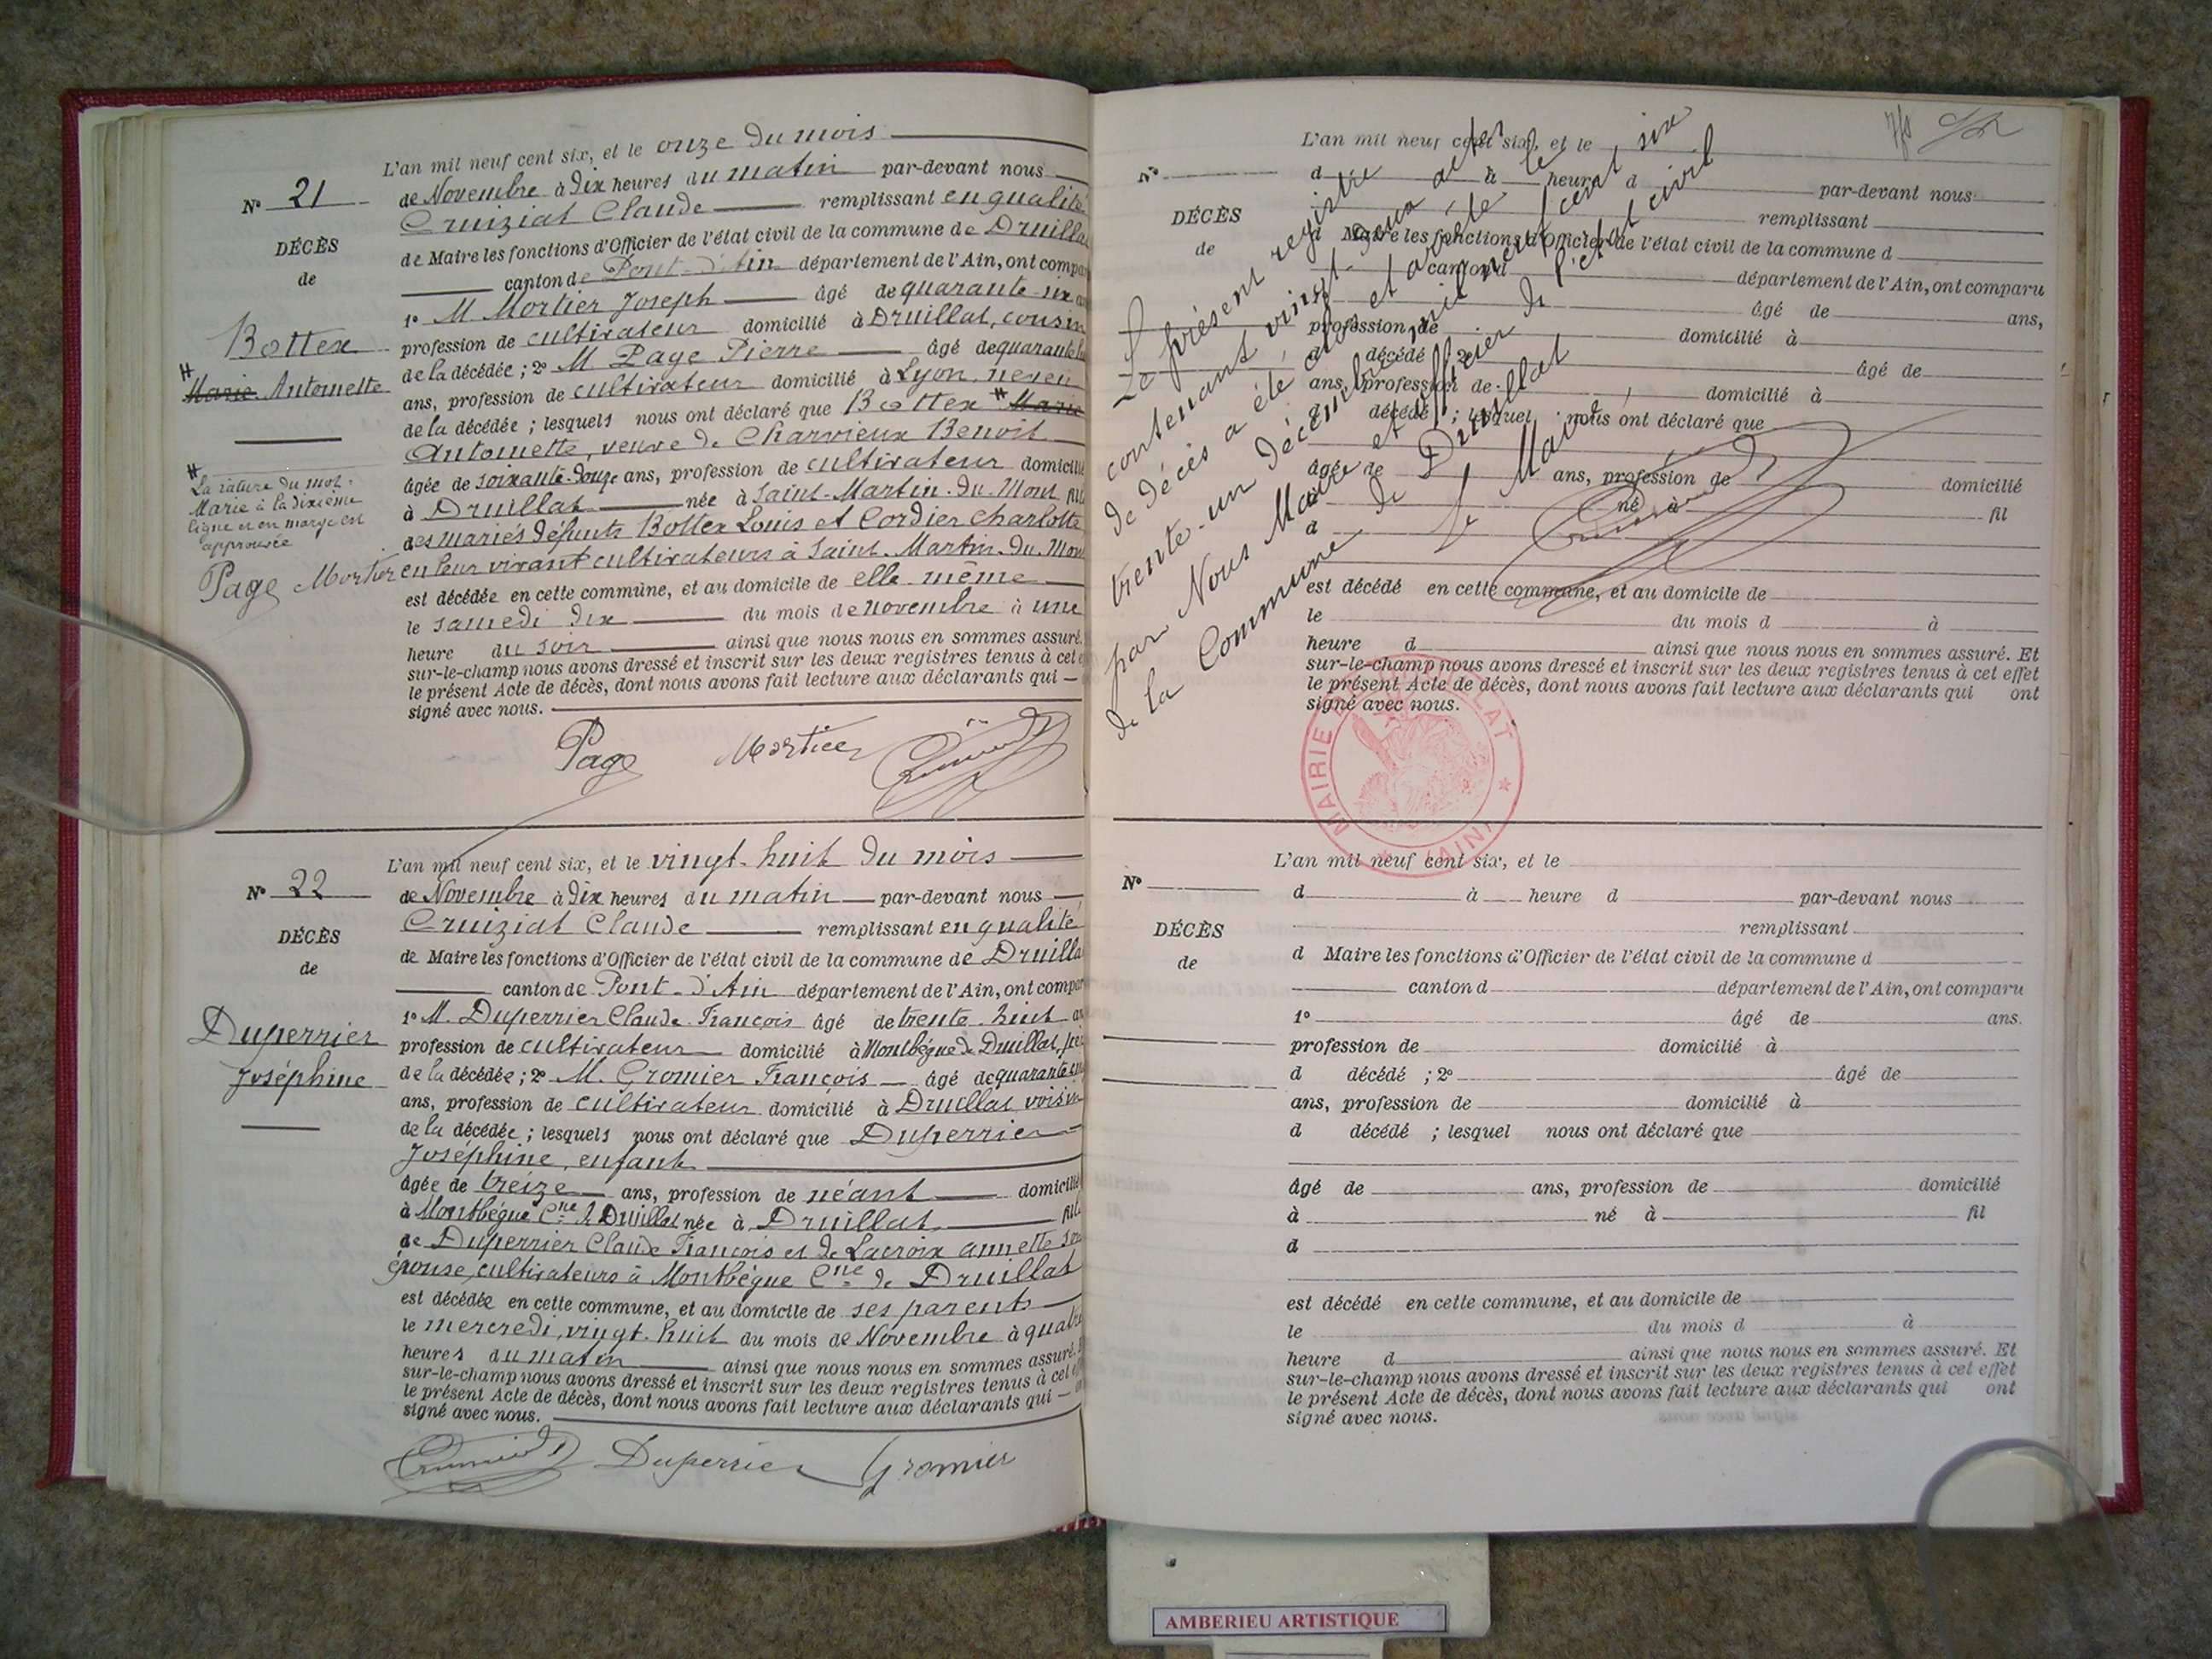 L'an mil neuf cent six, et le onze du mois
N° 21
de Novembre à Dix heures du matin par-devant nous
Cruiziat Claude remplissant en qualité
DÉCÈS
de
de Maire les fonctions d'Officier de l'état civil de la commune de Druillat
canton de Pont-d'Ain département de l'Ain, ont compa
1° M Mortier Joseph âgé de quarante-six
Bottex
profession de cultivateur domicilié à Druillat, cousin
de la décédée ; 2° M. Page Pierre âgé de quarante
# Marie Antoinette
ans, profession de cultivateur domicilié à Lyon, neveu
de la décédée ; lesquels nous ont déclaré que Bottex # Marie
Antoinette, veuve de Charvieux Benoît
âgée de soixante-douze ans, profession de cultivateur domicilié
# La rature du mot
Marie à la dixième
ligne et en marge est
approuvée
Page Mortier
à Druillat née à Saint-Martin-du-Mont
des mariés défunts Bottex Louis et Cordier Charlotte
en leur vivant cultivateurs à Saint-Martin-du-Mon
est décédée en cette commune, et au domicile de elle même
le samedi dix du mois de novembre à une
heure du soir ainsi que nous nous en sommes assuré.
sur-le-champ nous avons dressé et inscrit sur les deux registres tenus à cet
le présent Acte de décès, dont nous avons fait lecture aux déclarants qui
signé avec nous.
Page Mortier
L'an mil neuf cent six, et le vingt-huit du mois
N° 22
de Novembre à Dix heures du matin par-devant nous
Cruiziat Claude remplissant en qualité
DÉCÈS
de
de Maire les fonctions d'Officier de l'état civil de la commune de Druilla
canton de Pont-d'Ain département de l'Ain, ont compar
1° M. Duperrier Claude François âgé de trente-huit
Duperrier
Joséphine
profession de cultivateur domicilié à Montbègue de Druillat,
de la décédée ; 2° M. Gromier François âgé de quarante
ans, profession de cultivateur domicilié à Druillat voisin
de la décédée ; lesquels nous ont déclaré que Duperrier
Joséphine, enfant
âgée de treize ans, profession de néant domicilié
à Montbègue Cne de Druillat née à Druillat
de Duperrier Claude François et de Lacroix annette
épouse, cultivateurs à Montbègue Cne de Druillat
est décédée en cette commune, et au domicile de ses parents
le mercredi, vingt-huit du mois de Novembre à quatre
heures du matin ainsi que nous nous en sommes assuré.
sur-le-champ nous avons dressé et inscrit sur les deux registres tenus à cet
le présent Acte de décès, dont nous avons fait lecture aux déclarants qui
signé avec nous.
Duperrier Gromier
Le présent registre
contenant vingt-deux actes
de décès a été clos et arrêté le
trente-un décembre mil neuf cent six
par Nous Maire et officier de l'état civil
de la Commune de Druillat
Le Maire
L'an mil neuf cent six, et le
N°
d à heure d par-devant nous
DÉCÈS
de
remplissant
d Maire les fonctions d'Officier de l'état civil de la commune d
canton d département de l'Ain, ont comparu
âgé de ans,
profession de domicilié à
d décédé ; 2° âgé de
ans, profession de domicilié à
d décédé ; lesquel nous ont déclaré que
âgée de ans, profession de domicilié
à né à fil
d
est décédé en cette commune, et au domicile de
le du mois d à
heure d ainsi que nous nous en sommes assuré. Et
sur-le-champ nous avons dressé et inscrit sur les deux registres tenus à cet effet
le présent Acte de décès, dont nous avons fait lecture aux déclarants qui ont
signé avec nous.
MAIRIE DE DRUILLAT
* (AIN) *
L'an mil neuf cent six, et le
N°
d à heure d par-devant nous
DÉCÈS
de
remplissant
d Maire les fonctions d'Officier de l'état civil de la commune d
canton d département de l'Ain, ont comparu
1° âgé de ans.
profession de domicilié à
d décédé ; 2° âgé de
ans, profession de domicilié à
d décédé ; lesquel nous ont déclaré que
âgé de ans, profession de domicilié
à né à fil
d
est décédé en cette commune, et au domicile de
le du mois d à
heure d ainsi que nous nous en sommes assuré. Et
sur-le-champ nous avons dressé et inscrit sur les deux registres tenus à cet effet
le présent Acte de décès, dont nous avons fait lecture aux déclarants qui ont
signé avec nous.
AMBERIEU ARTISTIQUE